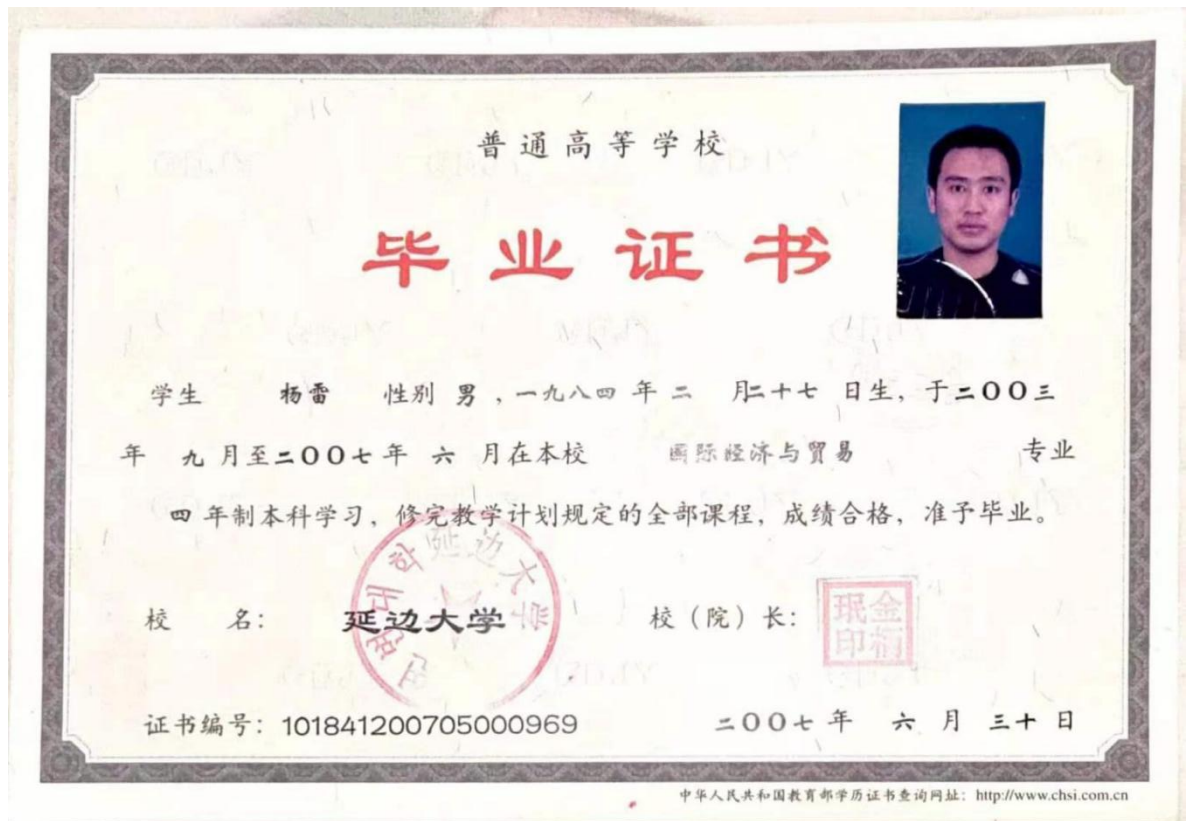 普通高等学校
毕业证书
学生 杨雷 性别 男 ，一九八四 年 二 月二十七 日生，于二〇〇三
年 九 月至二〇〇七年 六 月在本校 国际经济与贸易 专业
四 年制本科学习，修完教学计划规定的全部课程，成绩合格，准予毕业。
연변대학 延边大学
校 名： 延边大学 校（院）长： 金柄珉印
证书编号：101841200705000969 二〇〇七 年 六 月 三十 日
中华人民共和国教育部学历证书查询网址：http://www.chsi.com.cn